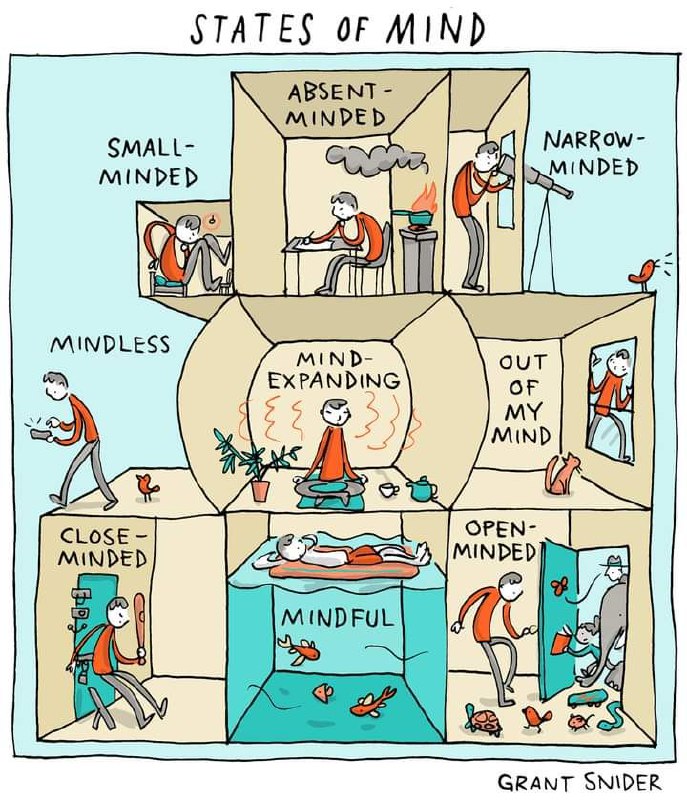 STATES OF MIND
ABSENT-
MINDED
SMALL-
MINDED
NARROW-
MINDED
MINDLESS
MIND-
EXPANDING
OUT
OF
MY
MIND
CLOSE-
MINDED
MINDFUL
OPEN-
MINDED
GRANT SNIDER